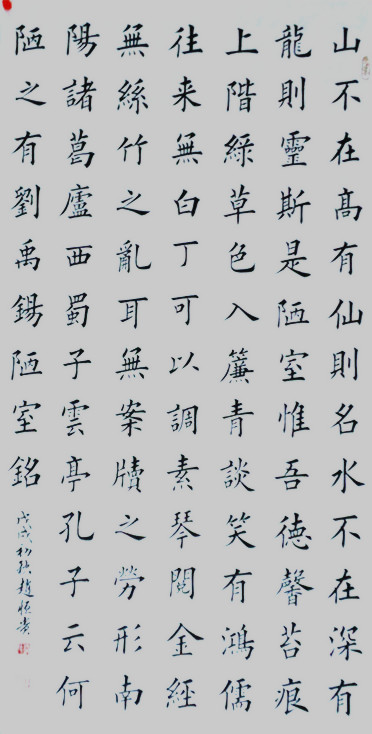 山不在髙有仙則名水不在深有
龍則靈斯是陋室惟吾德馨苔痕
上階綠草色入簾青談笑有鴻儒
往来無白丁可以調素琴閱金經
無絲竹之亂耳無案牘之勞形南
陽諸葛廬西蜀子雲亭孔子云何
陋之有劉禹錫陋室銘
戊戌初秋趙恒